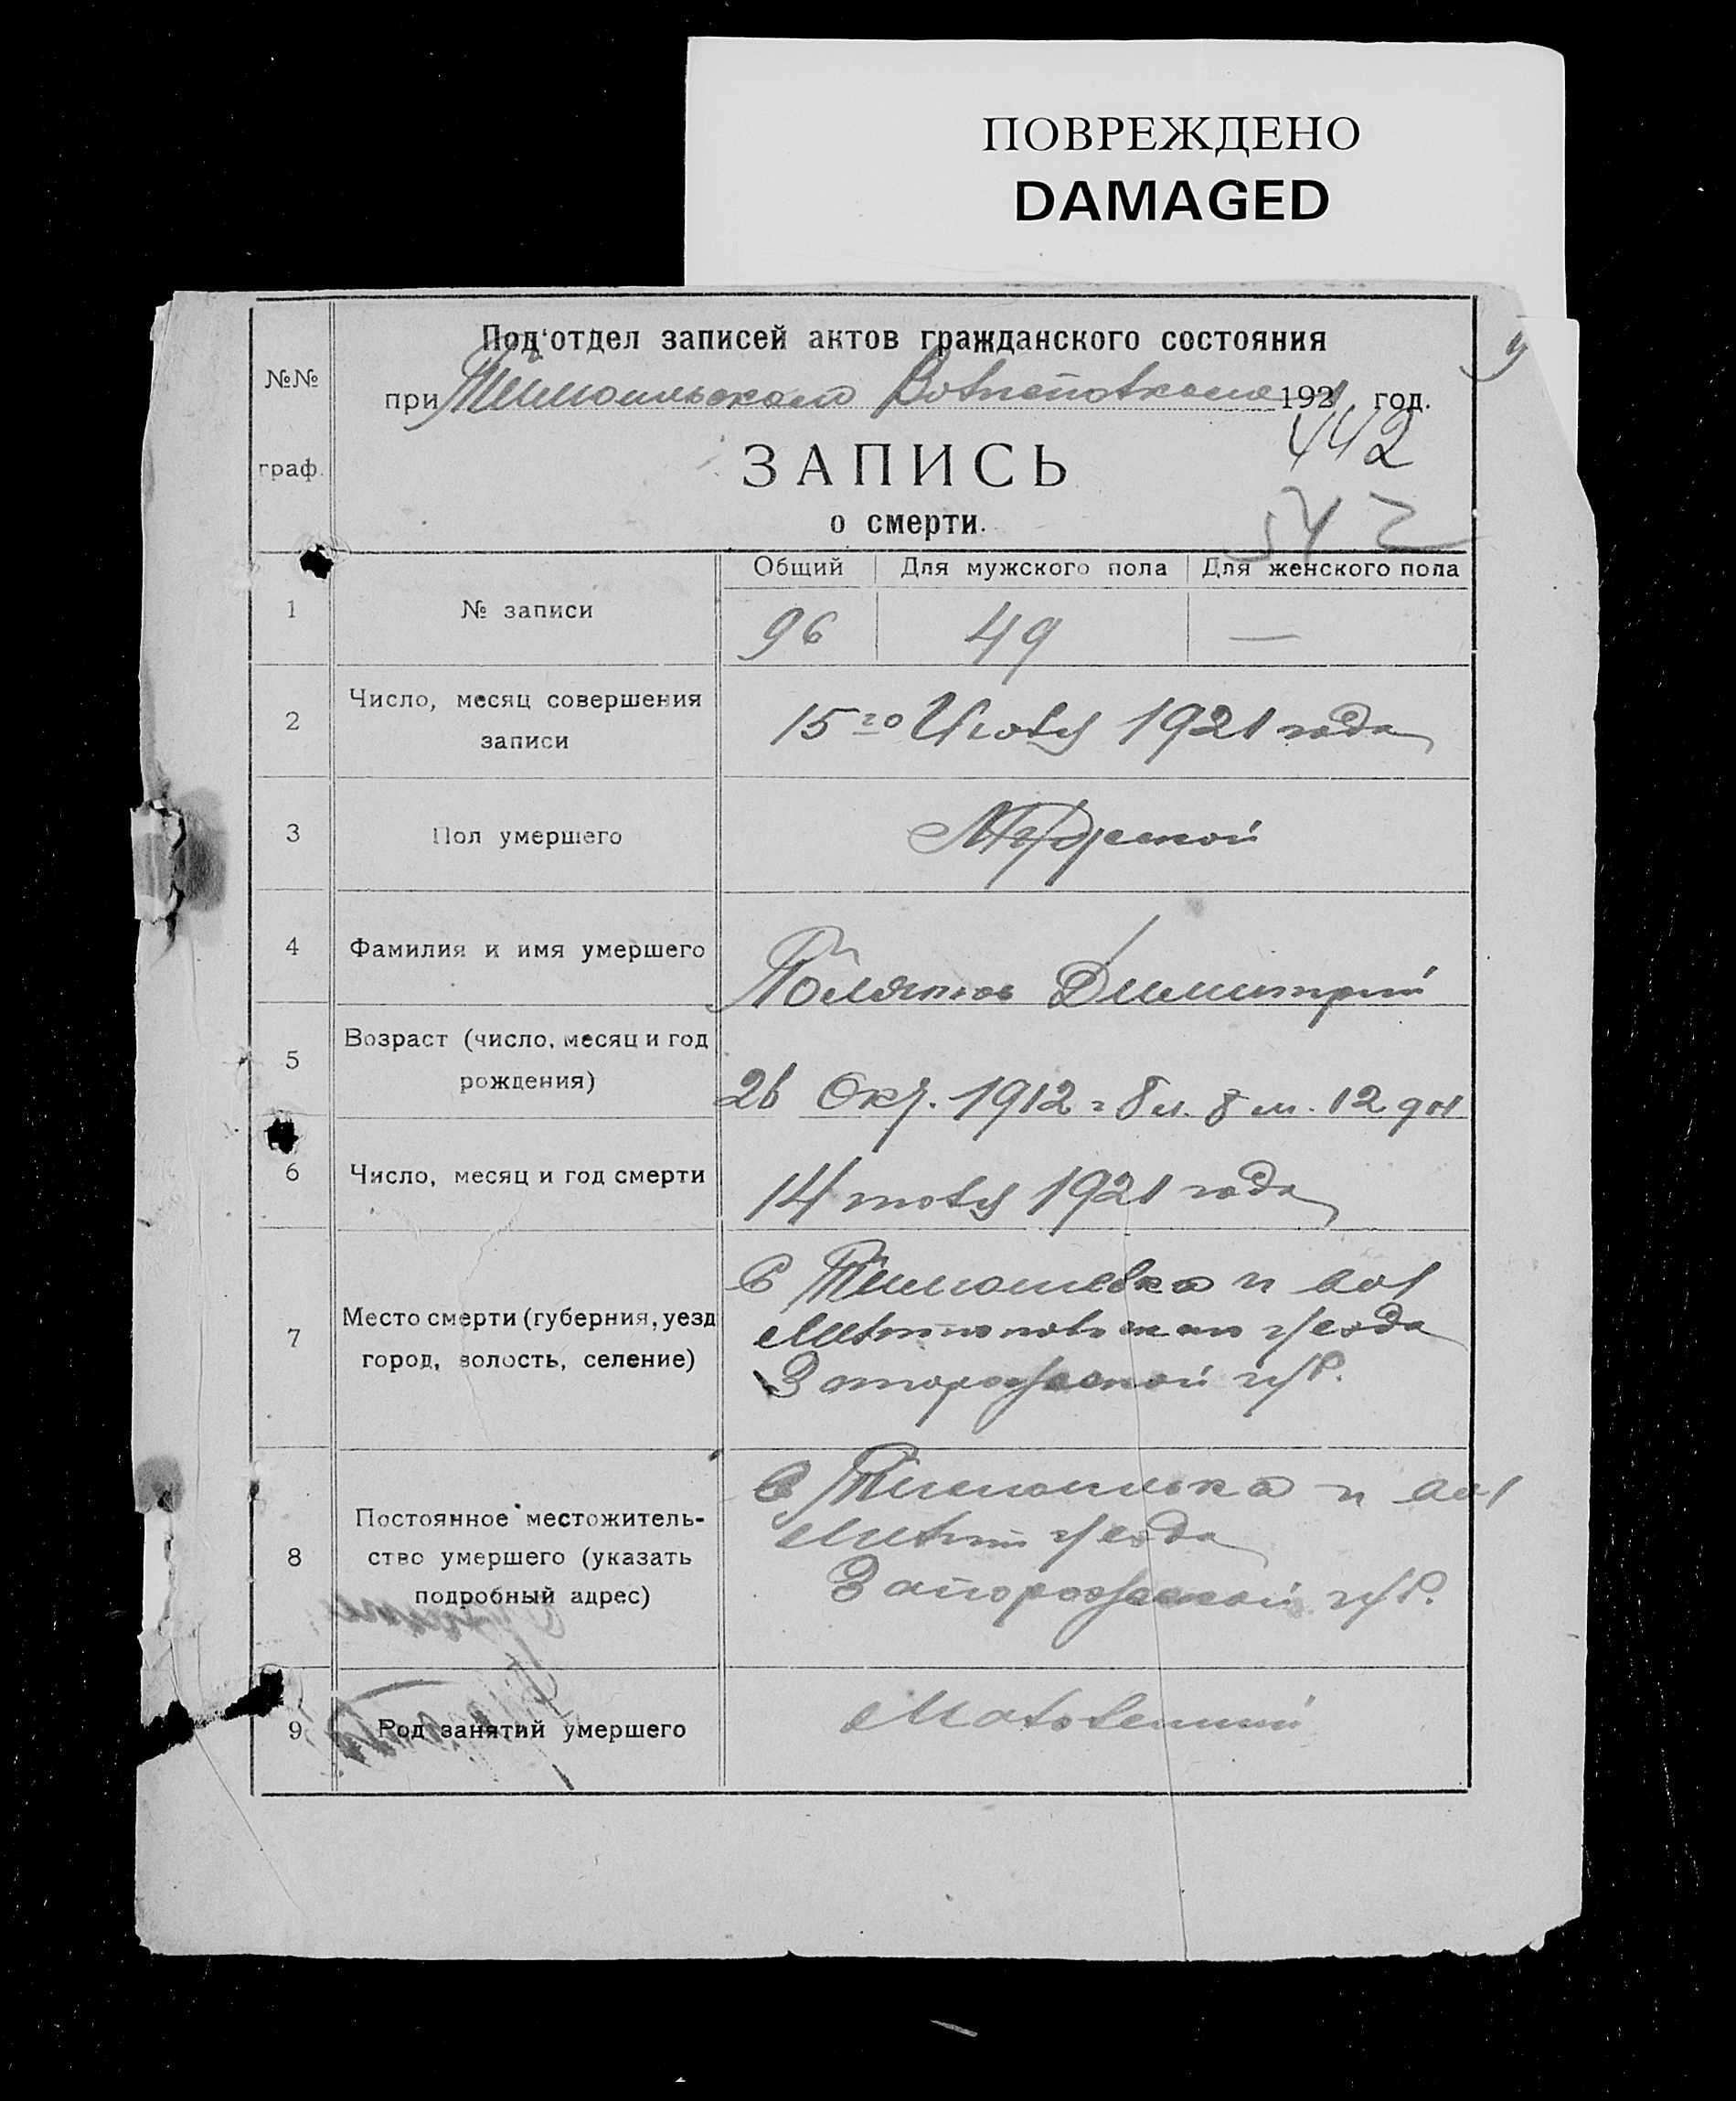 ПОВРЕЖДЕНО
DAMAGED
Под'отдел записей актов гражданского состояния
№№
при 1921 год.
442
граф.
ЗАПИСЬ
542
о смерти.
Общий Для мужского пола Для женского пола
1 № записи 96 49 —
2 Число, месяц совершения
записи
15го Июля 1921 года
3 Пол умершего Мужской
4 Фамилия и имя умершего
Димитрий
5 Возраст (число, месяц и год
рождения)
26 Окт. 1912 г 8 л. 8 м. 12 дн
6 Число, месяц и год смерти
14 июля 1921 года
7 Место смерти (губерния, уезд
город, волость, селение)
С Тимошевка и вол
Мелитопольского уезда
Запорожской губ.
8 Постоянное местожитель-
ство умершего (указать
подробный адрес)
С Тимошевка и вол
Мелит уезда
Запорожской губ.
9 Род занятий умершего